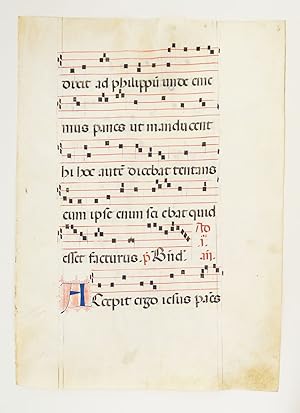 dixit ad philippū unde eme
mus panes ut manducent
hi hoc autē dicebat tentans
eum ipse enim sciebat quid
esset facturus. p̄ Bn̄d.
Accepit ergo iesus panēs